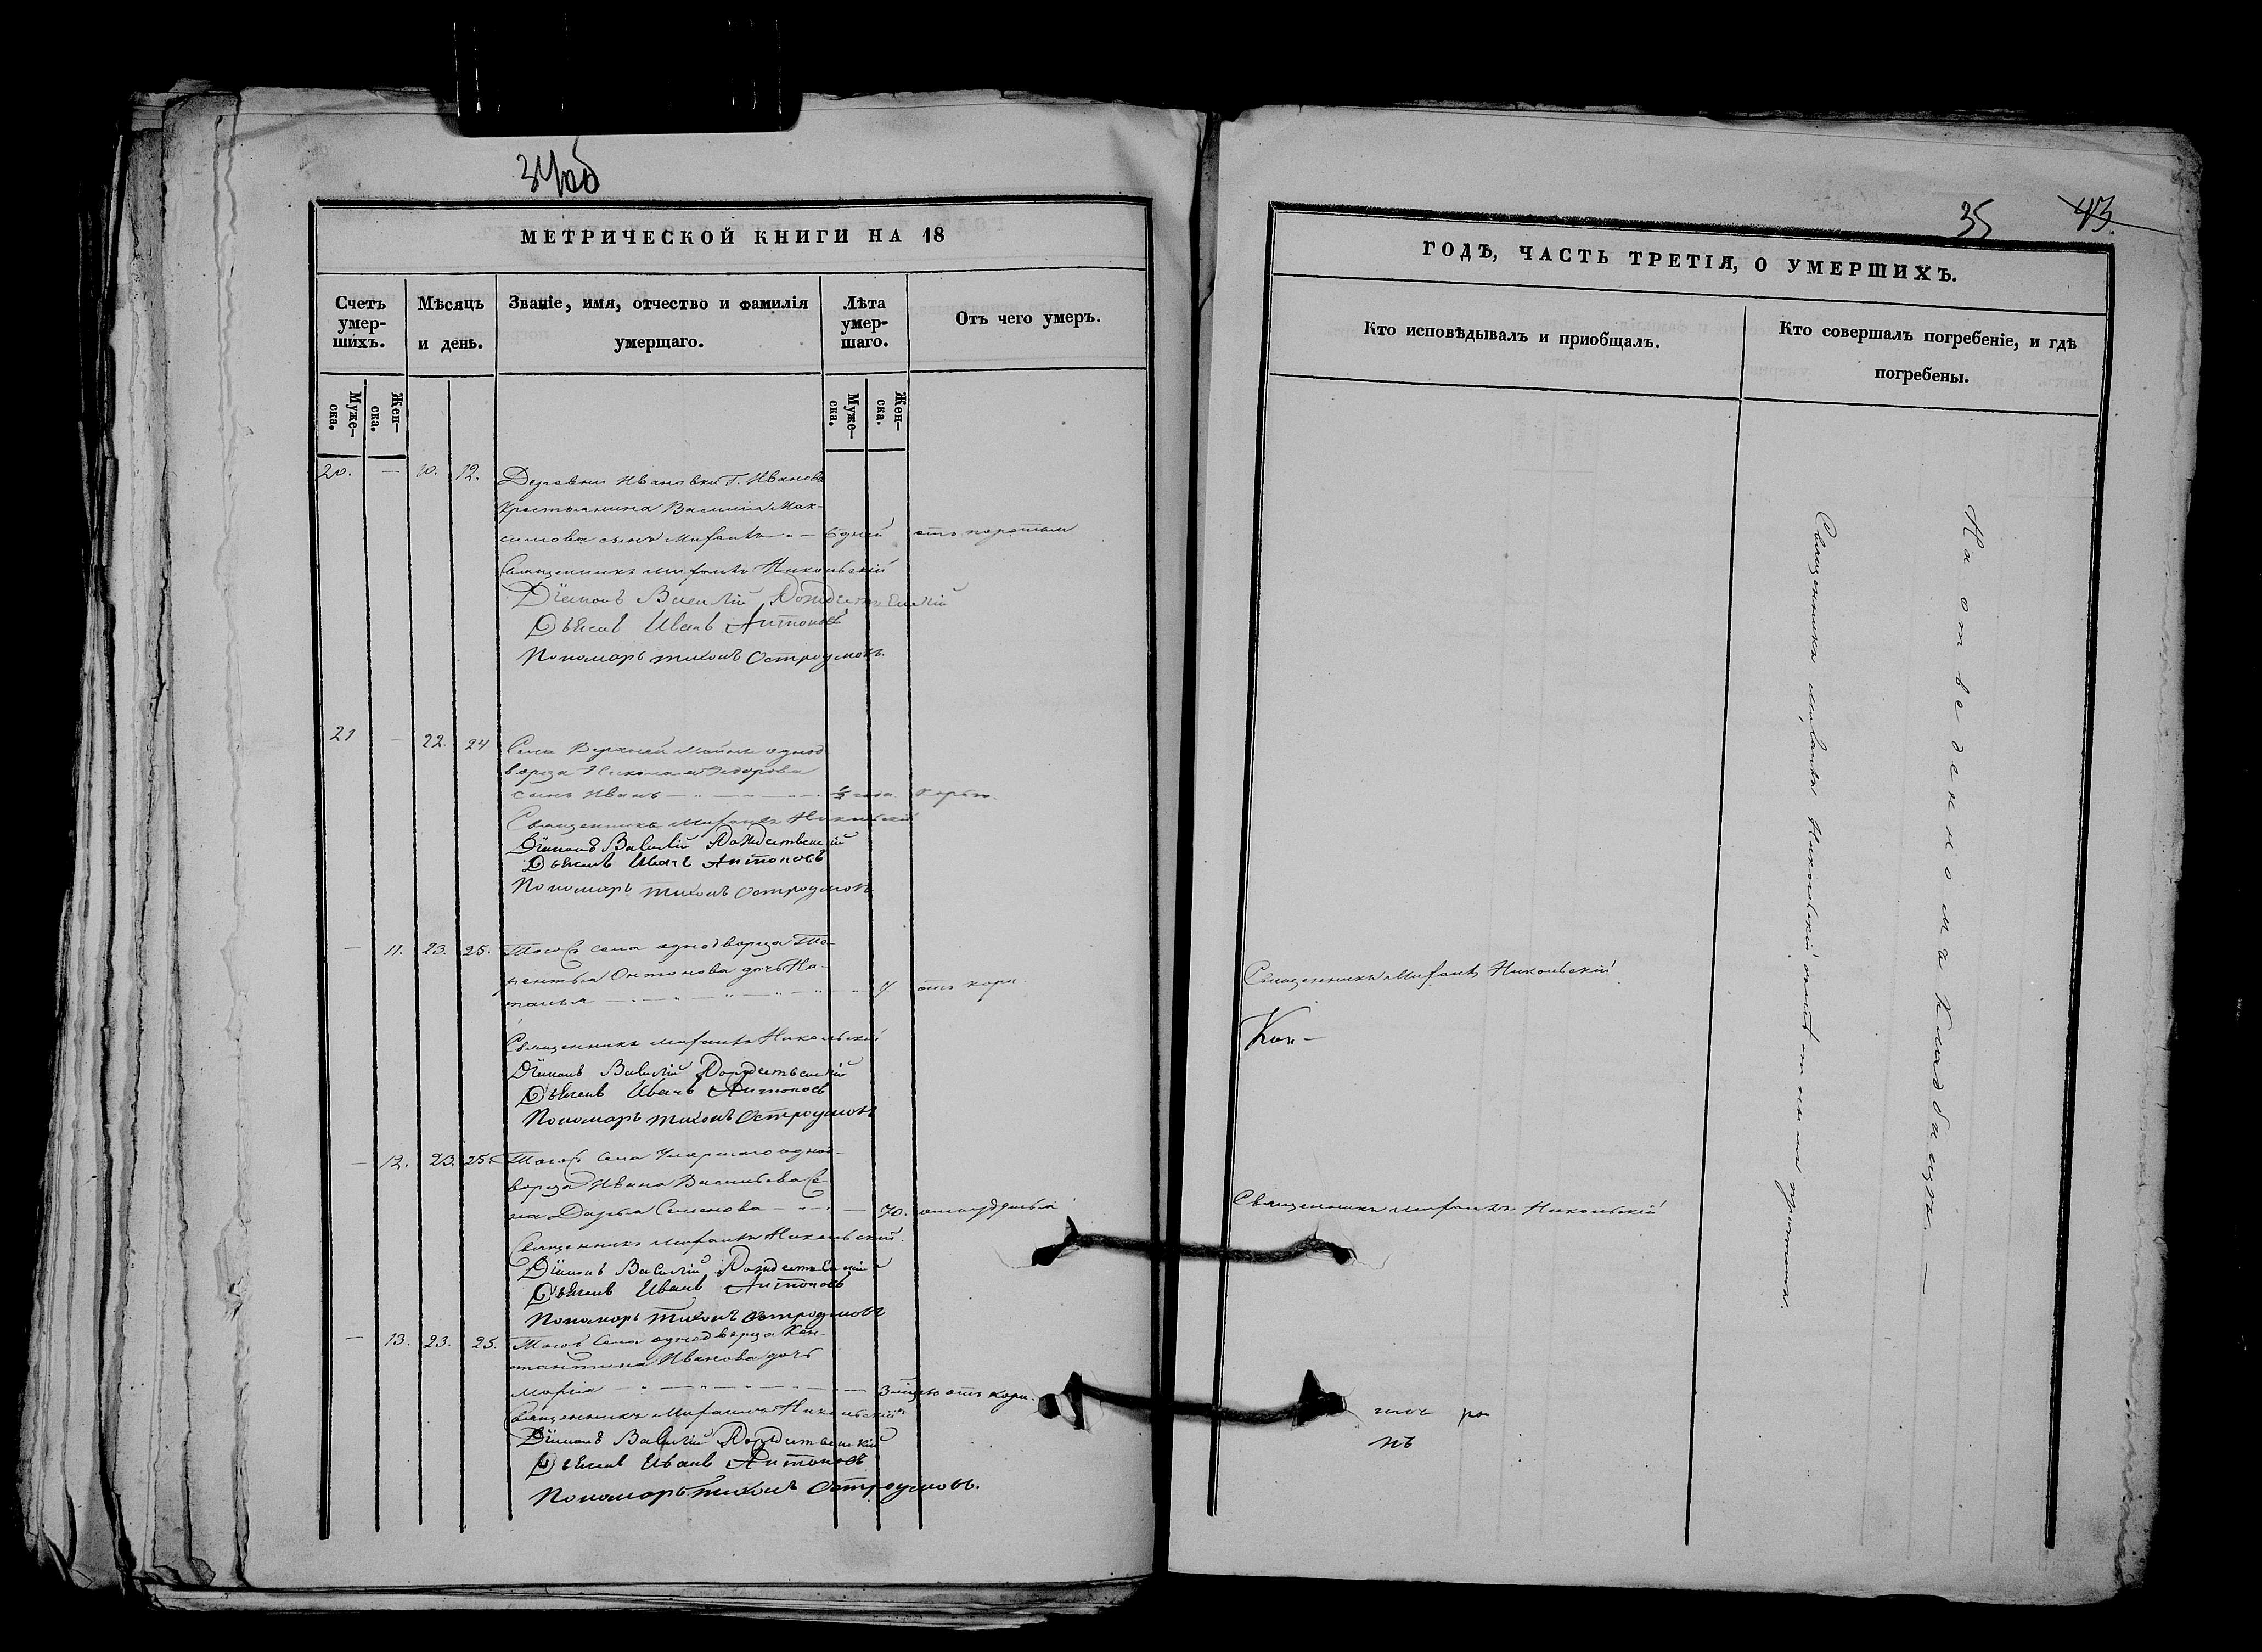 34об
МЕТРИЧЕСКОЙ КНИГИ НА 18
Счетъ умер-шихъ.
Мѣсяцъ и день.
Званіе, имя, отчество и фамилія умершаго.
Лѣта умер-шаго.
Отъ чего умеръ.
Муже-ска.
Жен-ска.
Муже-ска.
Жен-ска.
20. — 10. 12. Деревни Ивановки Г. Иванова
крестьянина Василія Мак-
симова сынъ Мифанъ — 6 дней
Священникъ Мифанъ Никольскій
Діаконъ Василій Рождественскій
Дьячекъ Иванъ Антоновъ
Пономарь Тихонъ Остроумовъ.
21 — 22. 24 Села Верхней Майны однод
ворца Николая Федорова
сынъ Иванъ — года. корью.
Священникъ Мифанъ Никольскій
Діаконъ Василій Рождественскій
Дьячекъ Иванъ Антоновъ
Пономарь Тихонъ Остроумовъ
— 11. 23. 25. Тогожъ села однодворца
Онтонова дочь На-
талья — 4. отъ кори.
Священникъ Мифанъ Никольскій
Діаконъ Василій Рождественскій
Дьячекъ Иванъ Антоновъ
Пономарь Тихонъ Остроумовъ
— 12. 23. 25. Тогожъ села Умершаго однод-
ворца Ивана Васильева же-
на Дарья Семенова — 70.
Священникъ Мифанъ Никольскій.
Діаконъ Василій Рождественскій
Дьячекъ Иванъ Антоновъ
Пономарь Тихонъ Остроумовъ
— 13. 23. 25. Тогожъ села однодворца Кон-
стантина Иванова дочь
Марія — 3 отъ кори.
Священникъ Мифанъ Никольскій
Діаконъ Василій Рождественскій
Дьячекъ Иванъ Антоновъ
Пономарь Тихонъ Остроумовъ.
35 43.
ГОДѢ, ЧАСТЬ ТРЕТІЯ, О УМЕРШИХЪ.
Кто исповѣдывалъ и пріобщалъ.
Кто совершалъ погребеніе, и гдѣ погребены.
Священникъ Мифанъ Никольскій
Кон-
Священникъ Мифанъ Никольскій
Священникъ Мифанъ Никольскій
На отведенномъ кладбищѣ. —